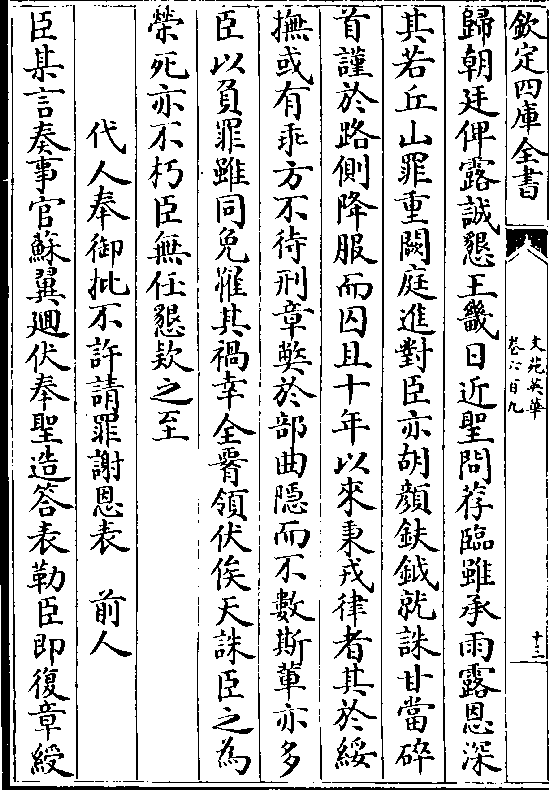 欽定四庫全書
文苑英華
卷六百九
十二
歸朝廷俾露誠懇王畿日近聖問荐臨雖承雨露恩深
其若丘山罪重闕庭進對臣亦胡顔鈇鉞就誅甘當碎
首謹於路側降服而囚且十年以來秉戎律者其於綏
撫或有乖方不待刑章斃於部曲隠而不數斯輩亦多
臣以負罪雖同免罹其禍幸全䯒領伏俟天誅臣之為
榮死亦不朽臣無任懇欵之至
代人奉御批不許請罪謝恩表　前人
臣某言奏事官蘇翼廻伏奉聖造答表勒臣即復章綬